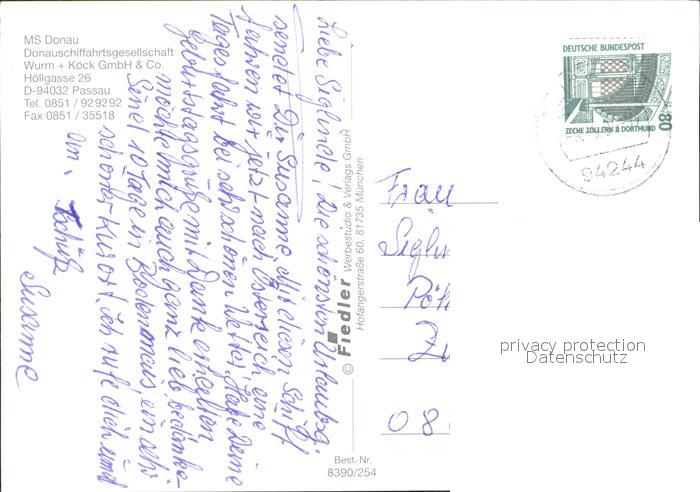 MS Donau
Donauschiffahrtsgesellschaft
Wurm + Köck GmbH & Co.
Höllgasse 26
D-94032 Passau
Tel. 0851 / 929292
Fax 0851 / 35518
Liebe Sieglinde! Die schönsten Urlaubsg.
sendet Dir Susanne. Mit diesen Schiff
fahren wir jetzt nach Österreich eine
Tagesfahrt bei sehr schönen Wetter. Habe Deine
Geburtstagsgrüße mit Danke erhalten
möchte mich auch ganz lieb bedanke
Sind 10 Tage in Bodenmais, ein sehr
schöner Kurort. Ich rufe dich mal
an. Tschüß
Susanne
© Fiedler Werbestudio & Verlags GmbH
Hofangerstraße 60, 81735 München
Best.-Nr.
8390/254
DEUTSCHE BUNDESPOST
80
ZECHE ZOLLERN II DORTMUND
94244
Frau
Siglin
Zu
08
privacy protection
Datenschutz